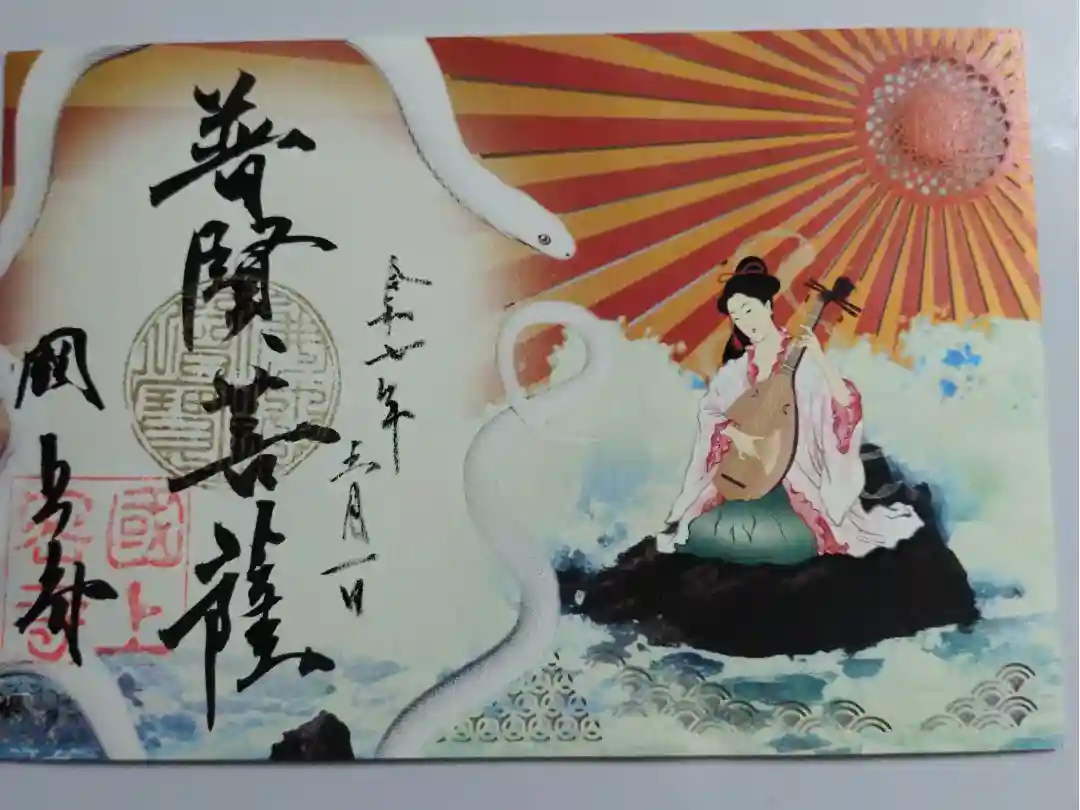 令和七年
五月一日
普賢菩薩
國上寺
國上